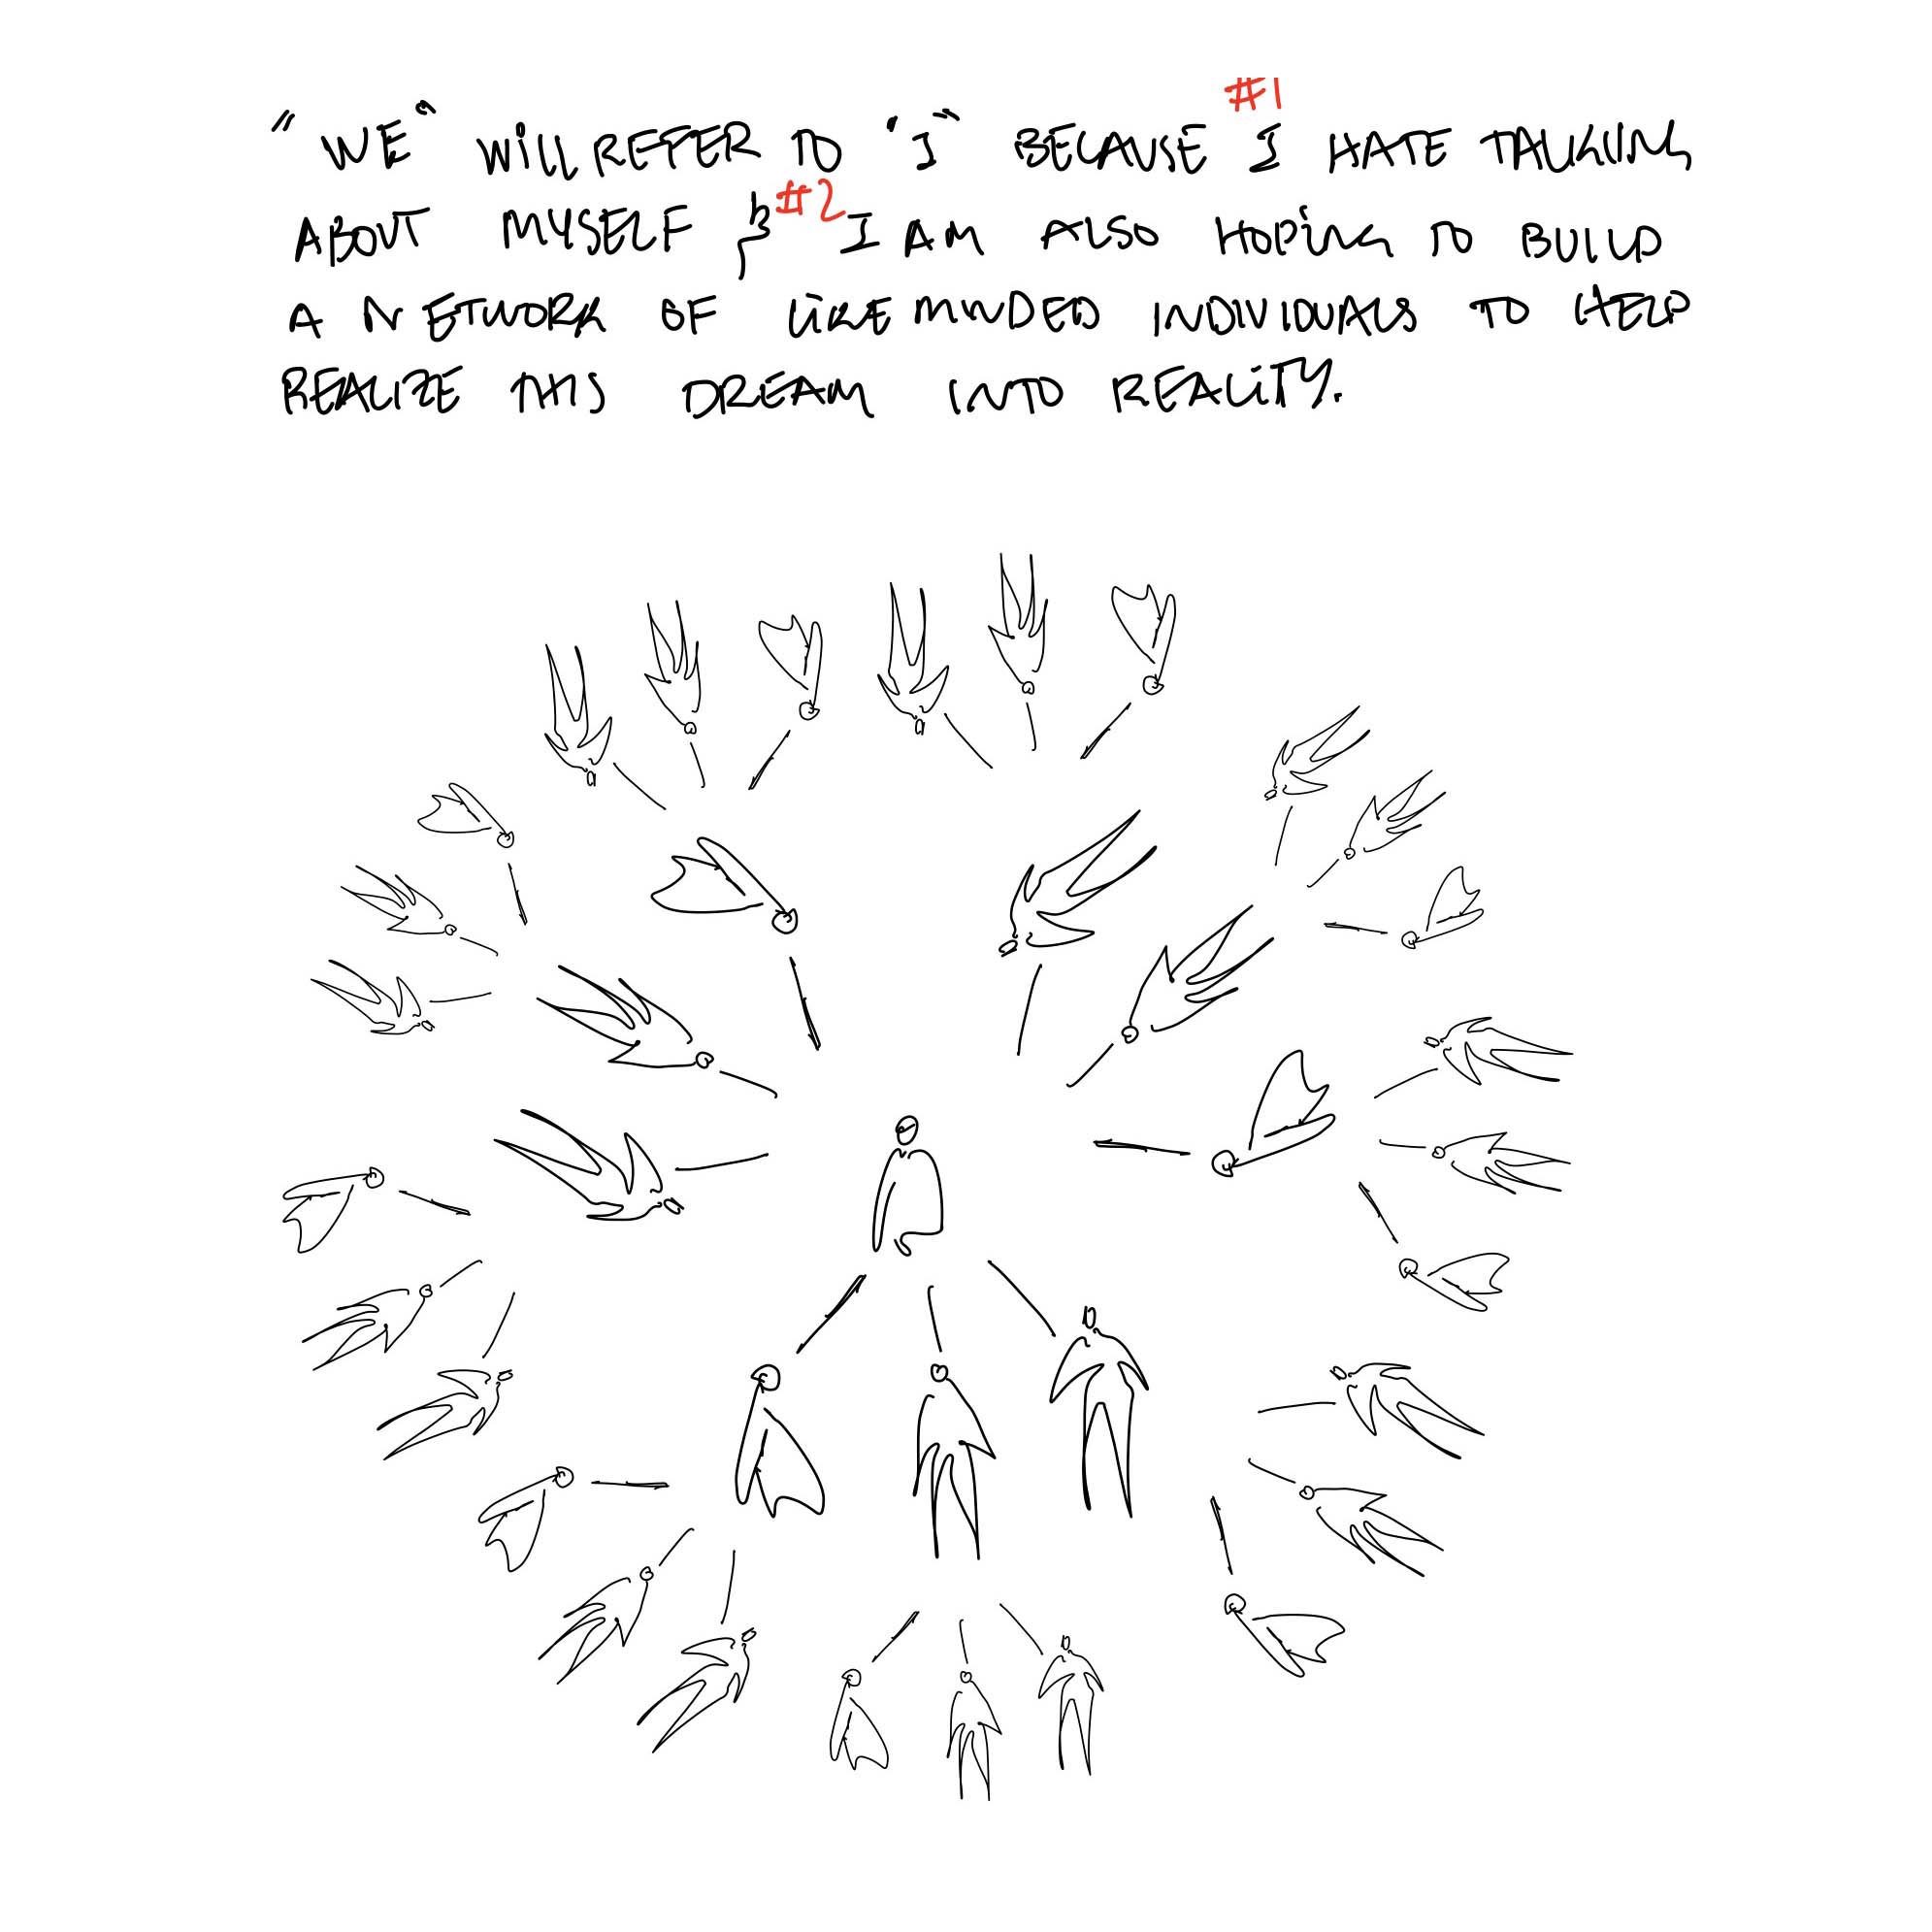 "WE" WILL REFER TO "I" BECAUSE #1 I HATE TALKING
ABOUT MYSELF & #2 I AM ALSO HOPING TO BUILD
A NETWORK OF LIKEMINDED INDIVIDUALS TO HELP
REALIZE THIS DREAM INTO REALITY.